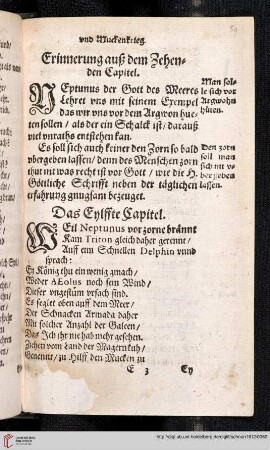 vnd Muckenkrieg.
59
Erinnerung auß dem Zehen-
den Capitel.
NEptunus der Gott des Meeres
Lehret vns mit seinem Exempel
das wir vns vor dem Argwon hue-
ten sollen / als der ein Schalck ist / darauß
viel vnraths entstehen kan.
Man sol-
le sich vor
Argwohn
hüten.
Es soll sich auch keiner den Zorn so bald
vbergeben lassen / denn des Menschen zorn
thut nit was recht ist vor Gott / wie die H.
Göttliche Schrifft neben der täglichen
erfahrung gnugsam bezeuget.
Den zorn
soll man
sich nit v-
bergeben
lassen.
Das Eylffte Capitel.
WEil Neptunus vor zorne brännt
Kam Triton gleich daher gerennt /
Auff eim Schnellen Delphin vnnd
sprach:
Ey König thu ein wenig gmach /
Weder AEolus noch sein Wind /
Dieser vngestüm vrsach sind.
Es seglet oben auff dem Meer /
Der Schnacken Armada daher
Mit solcher Anzahl der Galeen /
Das Ich jhr nie hab mehr gesehen.
Ziehen vom Land der Magern kuh /
Genennt / zu Hilff den Mucken zu
E 3
Ey